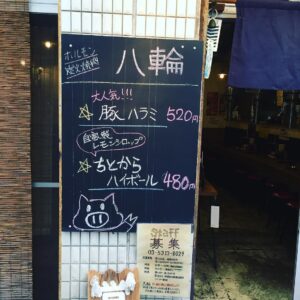 ホルモン
炭火焼肉
八輪
大人気!!!
☆豚ハラミ 520円
自家製
レモンシロップ
☆ちとから
ハイボール 480円
Staff
募集